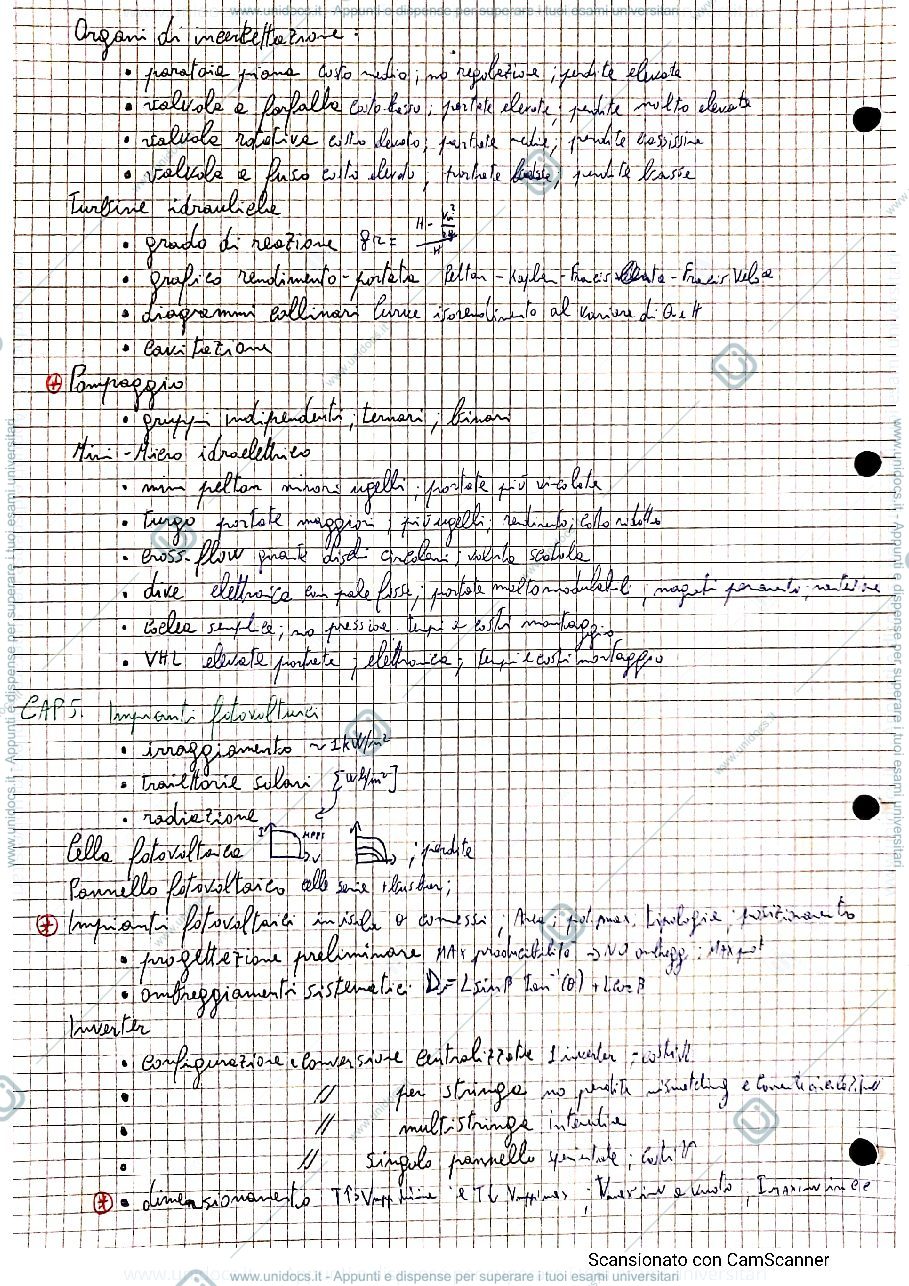 www.unidocs.it - Appunti e dispense per superare i tuoi esami universitari
Organi di intercettazione:
• paratoia piana costo medio; no regolazione; perdite elevate
• valvola a farfalla costo basso; portate elevate, perdite molto elevate
• valvola rotativa costo elevato; portate medie; perdite bassissime
• valvola a fuso costo elevato; portate basse; perdite basse
Turbine idrauliche
• grado di reazione gr =
• grafico rendimento-portata Pelton - Kaplan - Francis - Francis Veloce
• diagrammi collinari curve isorendimento al variare di Q e H
• cavitazione
Pompaggio
• gruppi indipendenti; ternari; binari
Mini-Micro idroelettrico
• mini pelton minori ugelli; portate più
• turgo portate maggiori; più ugelli; costo ridotto
• cross-flow dischi circolari; scatola
• dive elettronica con pale fisse; portate molto modulabili; magneti permanenti;
• coclea semplice; no pressione tempi e costi montaggio
• VHL elevate portate; elettronica; tempi e costi montaggio
CAP 5. Impianti fotovoltaici
• irraggiamento ~ 1kW/m²
• traiettorie solari [Wh/m²]
• radiazione
Cella fotovoltaica I MPPT V ; perdite
Pannello fotovoltaico celle serie
Impianti fotovoltaici in isola o connessi; Area, pot max, tipologie, posizionamento
• progettazione preliminare MAX producibilità → NO ombregg; MAX pot
• ombreggiamenti sistematici D = L sinβ tan⁻¹(θ) + L cosβ
Inverter
• configurazione e conversione centralizzate 1 inverter
• // per stringa no perdite mismatching e
• // multistringa
• // singolo pannello
• dimensionamento
Scansionato con CamScanner
www.unidocs.it - Appunti e dispense per superare i tuoi esami universitari